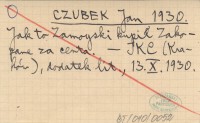 CZUBEK Jan 1930.
Jak to Zamoyski kupił Zako-
pane za centa. — IKC (Kra-
ków), dodatek lit., 13.X.1930.
BT/010/0059